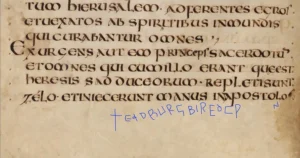 tum hierusalem. adferentes egros
et uexatos ab spiritibus inmundis
qui curabantur omnes
Exurgens autem princeps sacerdotum
et omnes qui cum illo erant quae est
heresis sadducaeorum. repleti sunt
zelo. et iniecerunt manus in apostolo
+EADBURG BIREÐ CP N